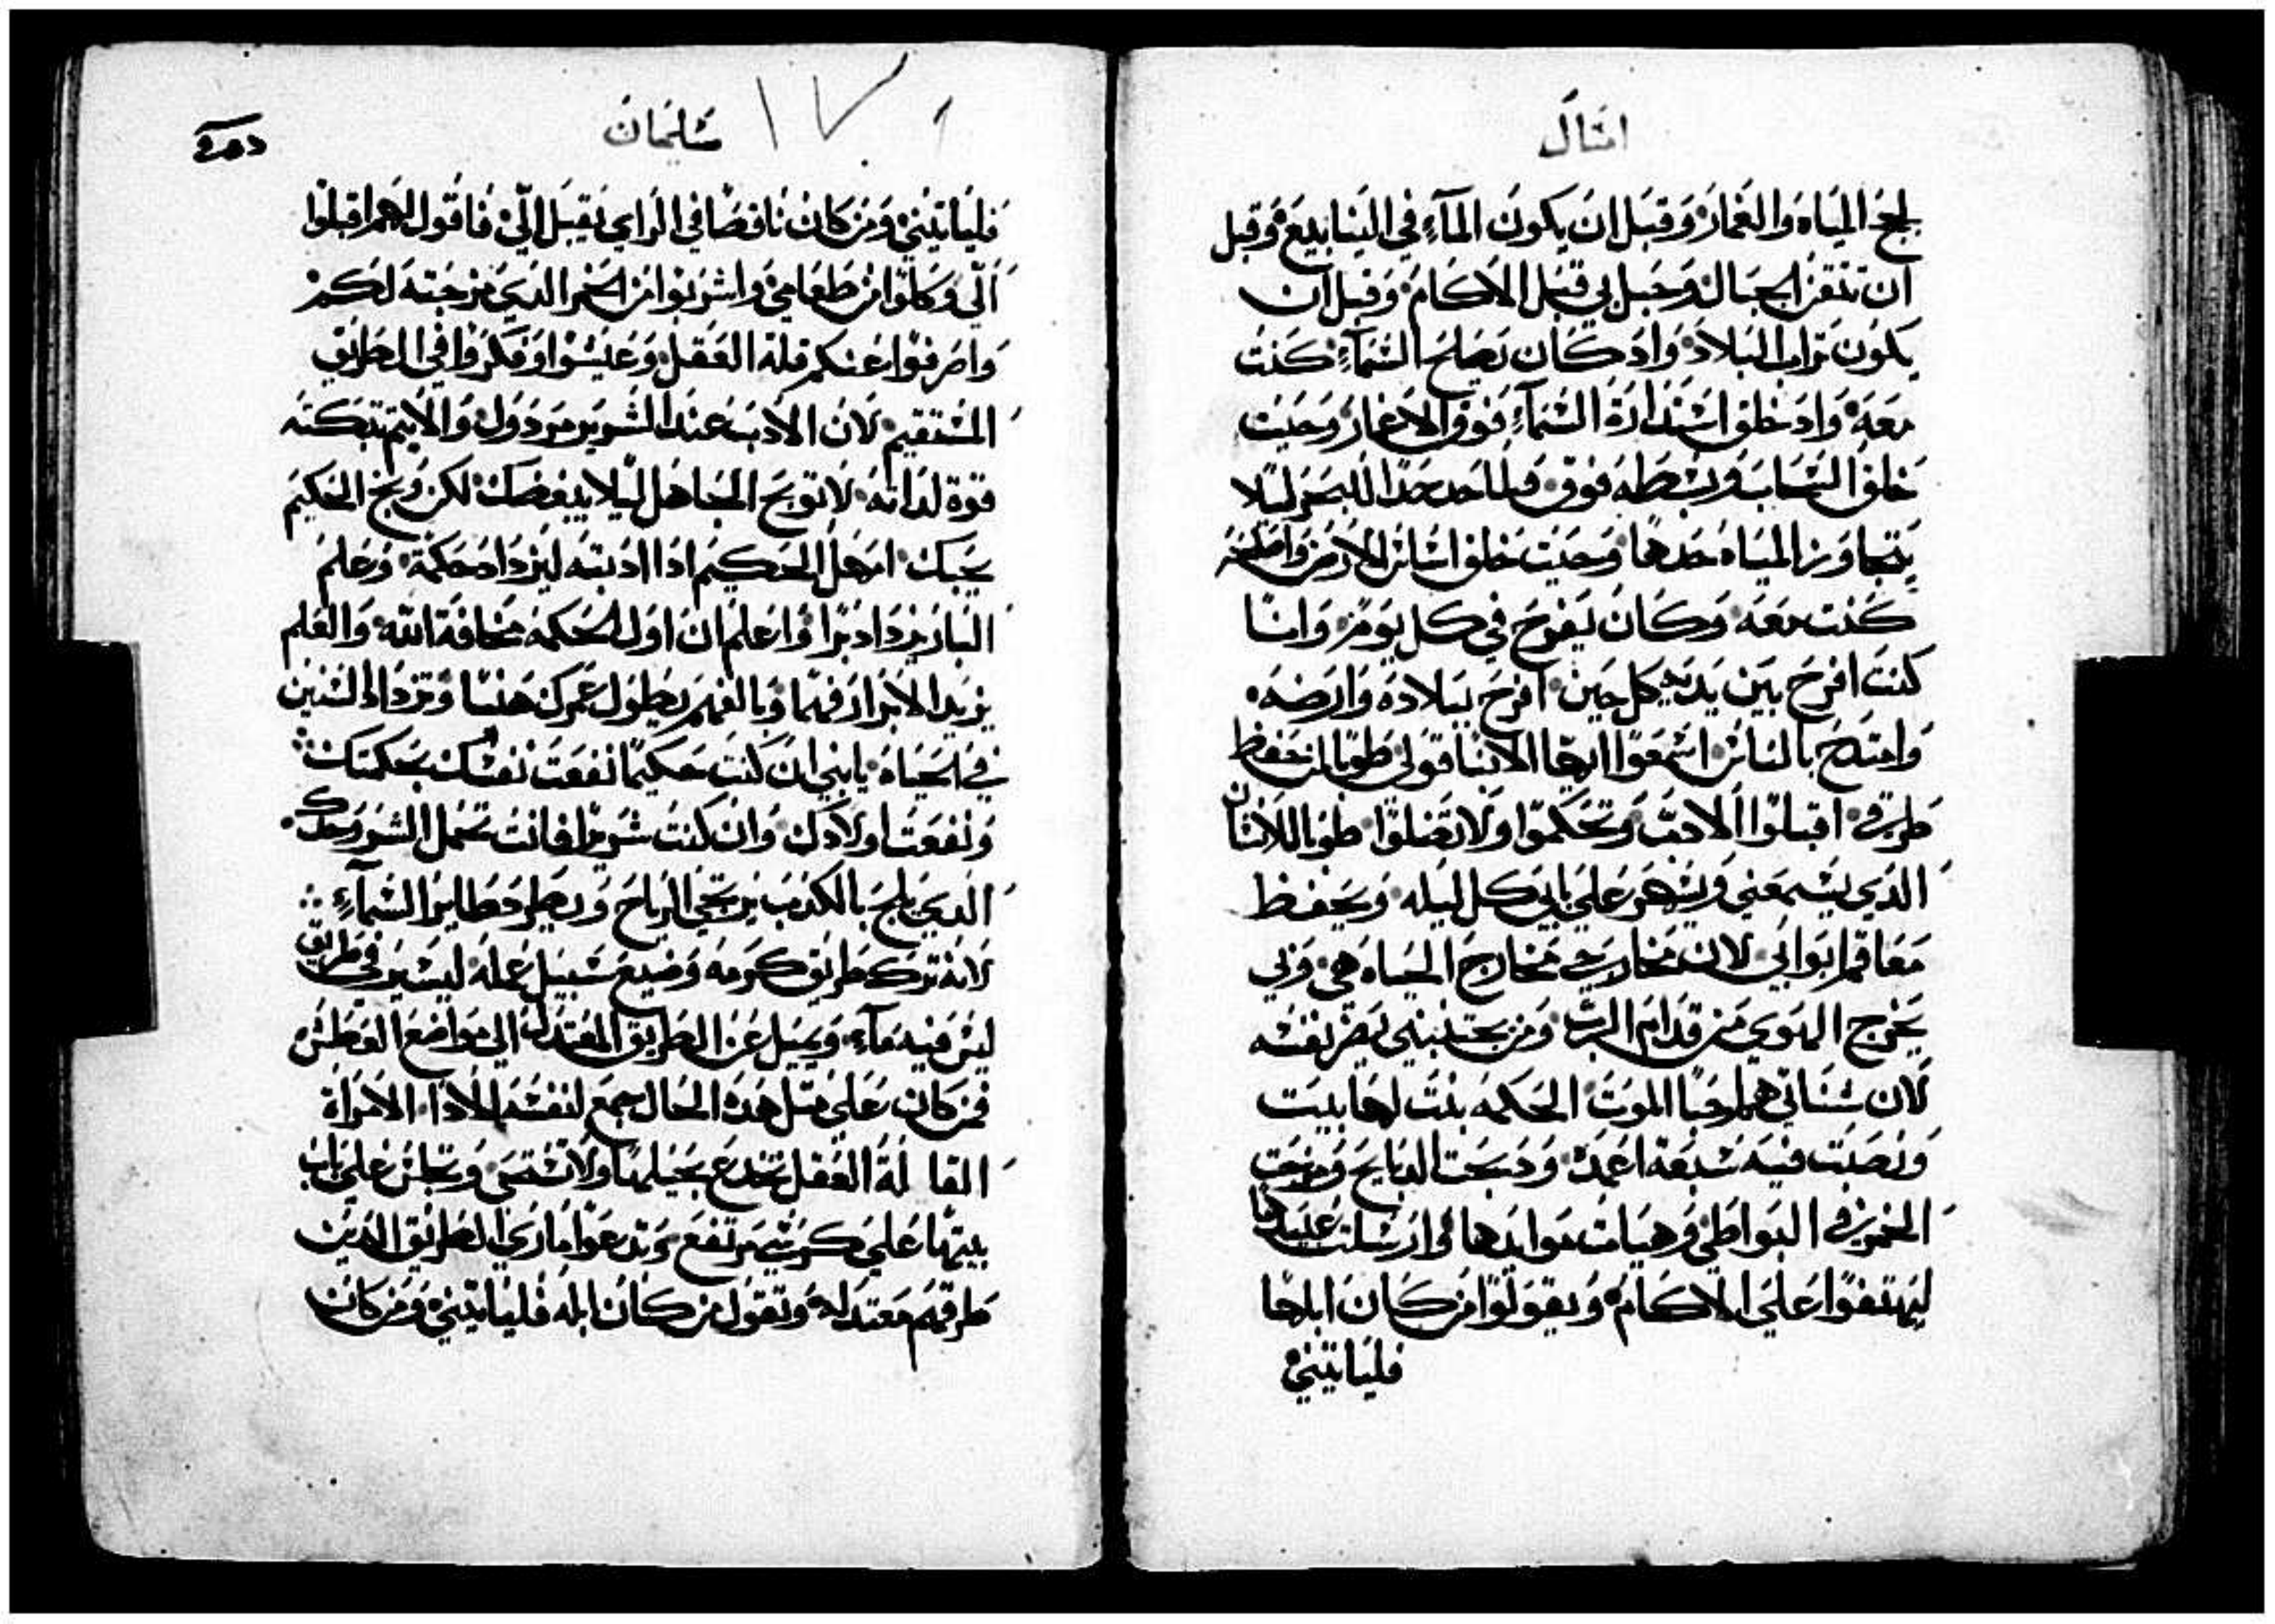 امثال
لجج المياه والغمار وقبل ان يكون المآء في الينابيع وقبل
ان تتقن الجبال وحبل بي قبل الاكام وقبل ان
يكون تراب البلاد واد كان يصلح السمآء كنت
معه واد خلق استدارة السمآء فوق الاغمار وحيت
خلق السحاب وبسطه فوق ولما حد حدا للبحر ليلا
يتجاوز المياه حدها وحيت خلق اساس الارض واصلحه
كنت معه وكان يفرح في كل يوم وانا
كنت افرح بين يديه كل حين افرح ببلاده وارضه
وامتدح بالناس اسمعوا ايها الابنا قولي طوبا لمن حفظ
طرقي اقبلوا الادب وتحكموا ولا تضلوا طوبا للانسان
الدي يسمعني ويسهر علي بابي كل ليله ويحفظ
معاقم ابوابي لان مخارجي مخارج الحياه هي وبي
يخرج الهوي من قدام الرب ومن يجتنبني يضر نفسه
لان شناتي هم احبا الموت الحكمه بنت لها بيت
ونصبت فيه سبعة اعمده ودبحت الدبايح ومزجت
الخمر في البواطي وهيات موايدها وارسلت عبيدها
ليهتفوا علي الاكام ويقولوا من كان ابلها
فلياتيني
سليمان
فلياتيني ومن كان ناقصا في الراي يقبل اليّ فاقول لهم اقبلوا
الّي وكلوا من طعامي واشربوا من الخمر الدي مزجته لكم
واصرفوا عنكم قلة العقل وعيشوا وفكروا في الطريق
المستقيم لان الادب عند الشرير مردول والاثيم تبكته
قوة لداته لا توبخ الجاهل ليلا يبغضك لكن وبخ الحكيم
يحبك امهل الحكيم ادا ادبته ليزداد حكمة وعلم
البار يزداد برا واعلم ان اول الحكمه مخافة الله والعلم
يزيد الابرار فهما وبالفهم يطول عمرك هنيا وتزداد السنين
في الحياه يابني ان كنت حكيما نفعت نفسك بحكمتك
ونفعت اولادك وان كنت شريرا فانت تحمل الشر وحدك
الدي يلج بالكدب يرتجي الرياح ويطرد طاير السمآء
لانه ترك طريق كرمه وضيع سبيل عمله ليسير في طريق
ليس فيه مآء ويميل عن الطريق المعتدل الي مواضع العطش
فمن كان علي متل هده الحال جمع لنفسه الادا الامراة
القا لة العقل تخدع بحيلها ولا تستحي وتجلس علي باب
بيتها علي كرسي مرتفع وتدعوا مارى الطريق الدين
طرقهم معتدله وتقول من كان ابله فلياتيني ومن كان